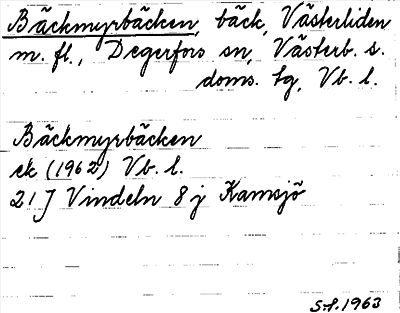 Bäckmyrbäcken, bäck, Västerliden
m. fl., Degerfors sn, Västerb. s.
doms. tg, Vb. l.
Bäckmyrbäcken
ek (1962) Vb. l.
21J Vindeln 8j Kamsjö
S.f. 1963